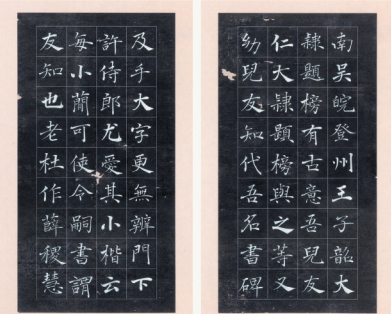 南吳皖登州王子韶大
隸題榜有古意吾兒友
仁大隸題榜與之等又
幼兒友知代吾名書碑
及手大字更無辨門下
許侍郎尤愛其小楷云
每小簡可使令嗣書謂
友知也老杜作薛稷慧